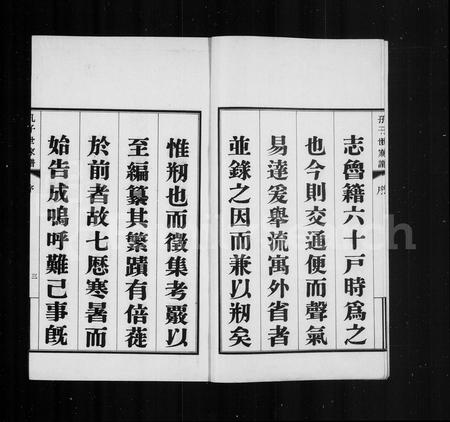 孔子世家譜 序
志魯籍六十戸時爲之
也今則交通便而聲氣
易達爰舉流寓外省者
並錄之因而兼以刱矣
惟刱也而徵集考覈以
至編纂其繁蹟有倍蓰
於前者故七厯寒暑而
始告成嗚呼難已事旣
孔子世家譜 序 三